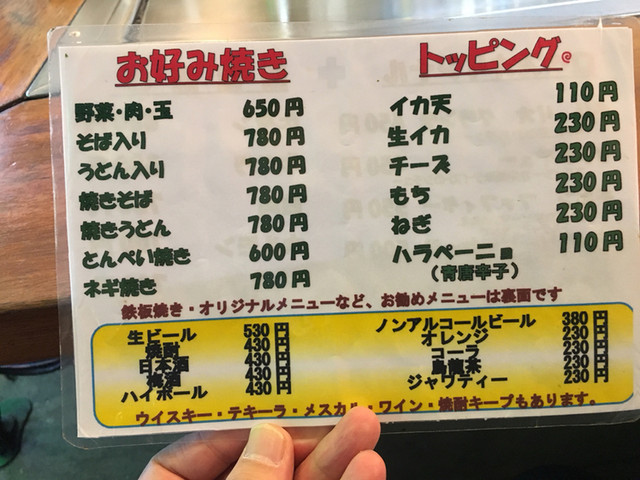 お好み焼き
野菜・肉・玉 650円
そば入り 780円
うどん入り 780円
焼きそば 780円
焼きうどん 780円
とんぺい焼き 600円
ネギ焼き 780円
トッピング
イカ天 110円
生イカ 230円
チーズ 230円
もち 230円
ねぎ 230円
ハラペーニ 110円
(青唐辛子)
鉄板焼き・オリジナルメニューなど、お勧めメニューは裏面です
生ビール 530円
焼酎 430円
日本酒 430円
梅酒 430円
ハイボール 430円
ノンアルコールビール 380円
オレンジ 230円
コーラ 230円
烏龍茶 230円
ジャワティー 230円
ウイスキー・テキーラ・メスカル・ワイン・焼酎キープもあります。